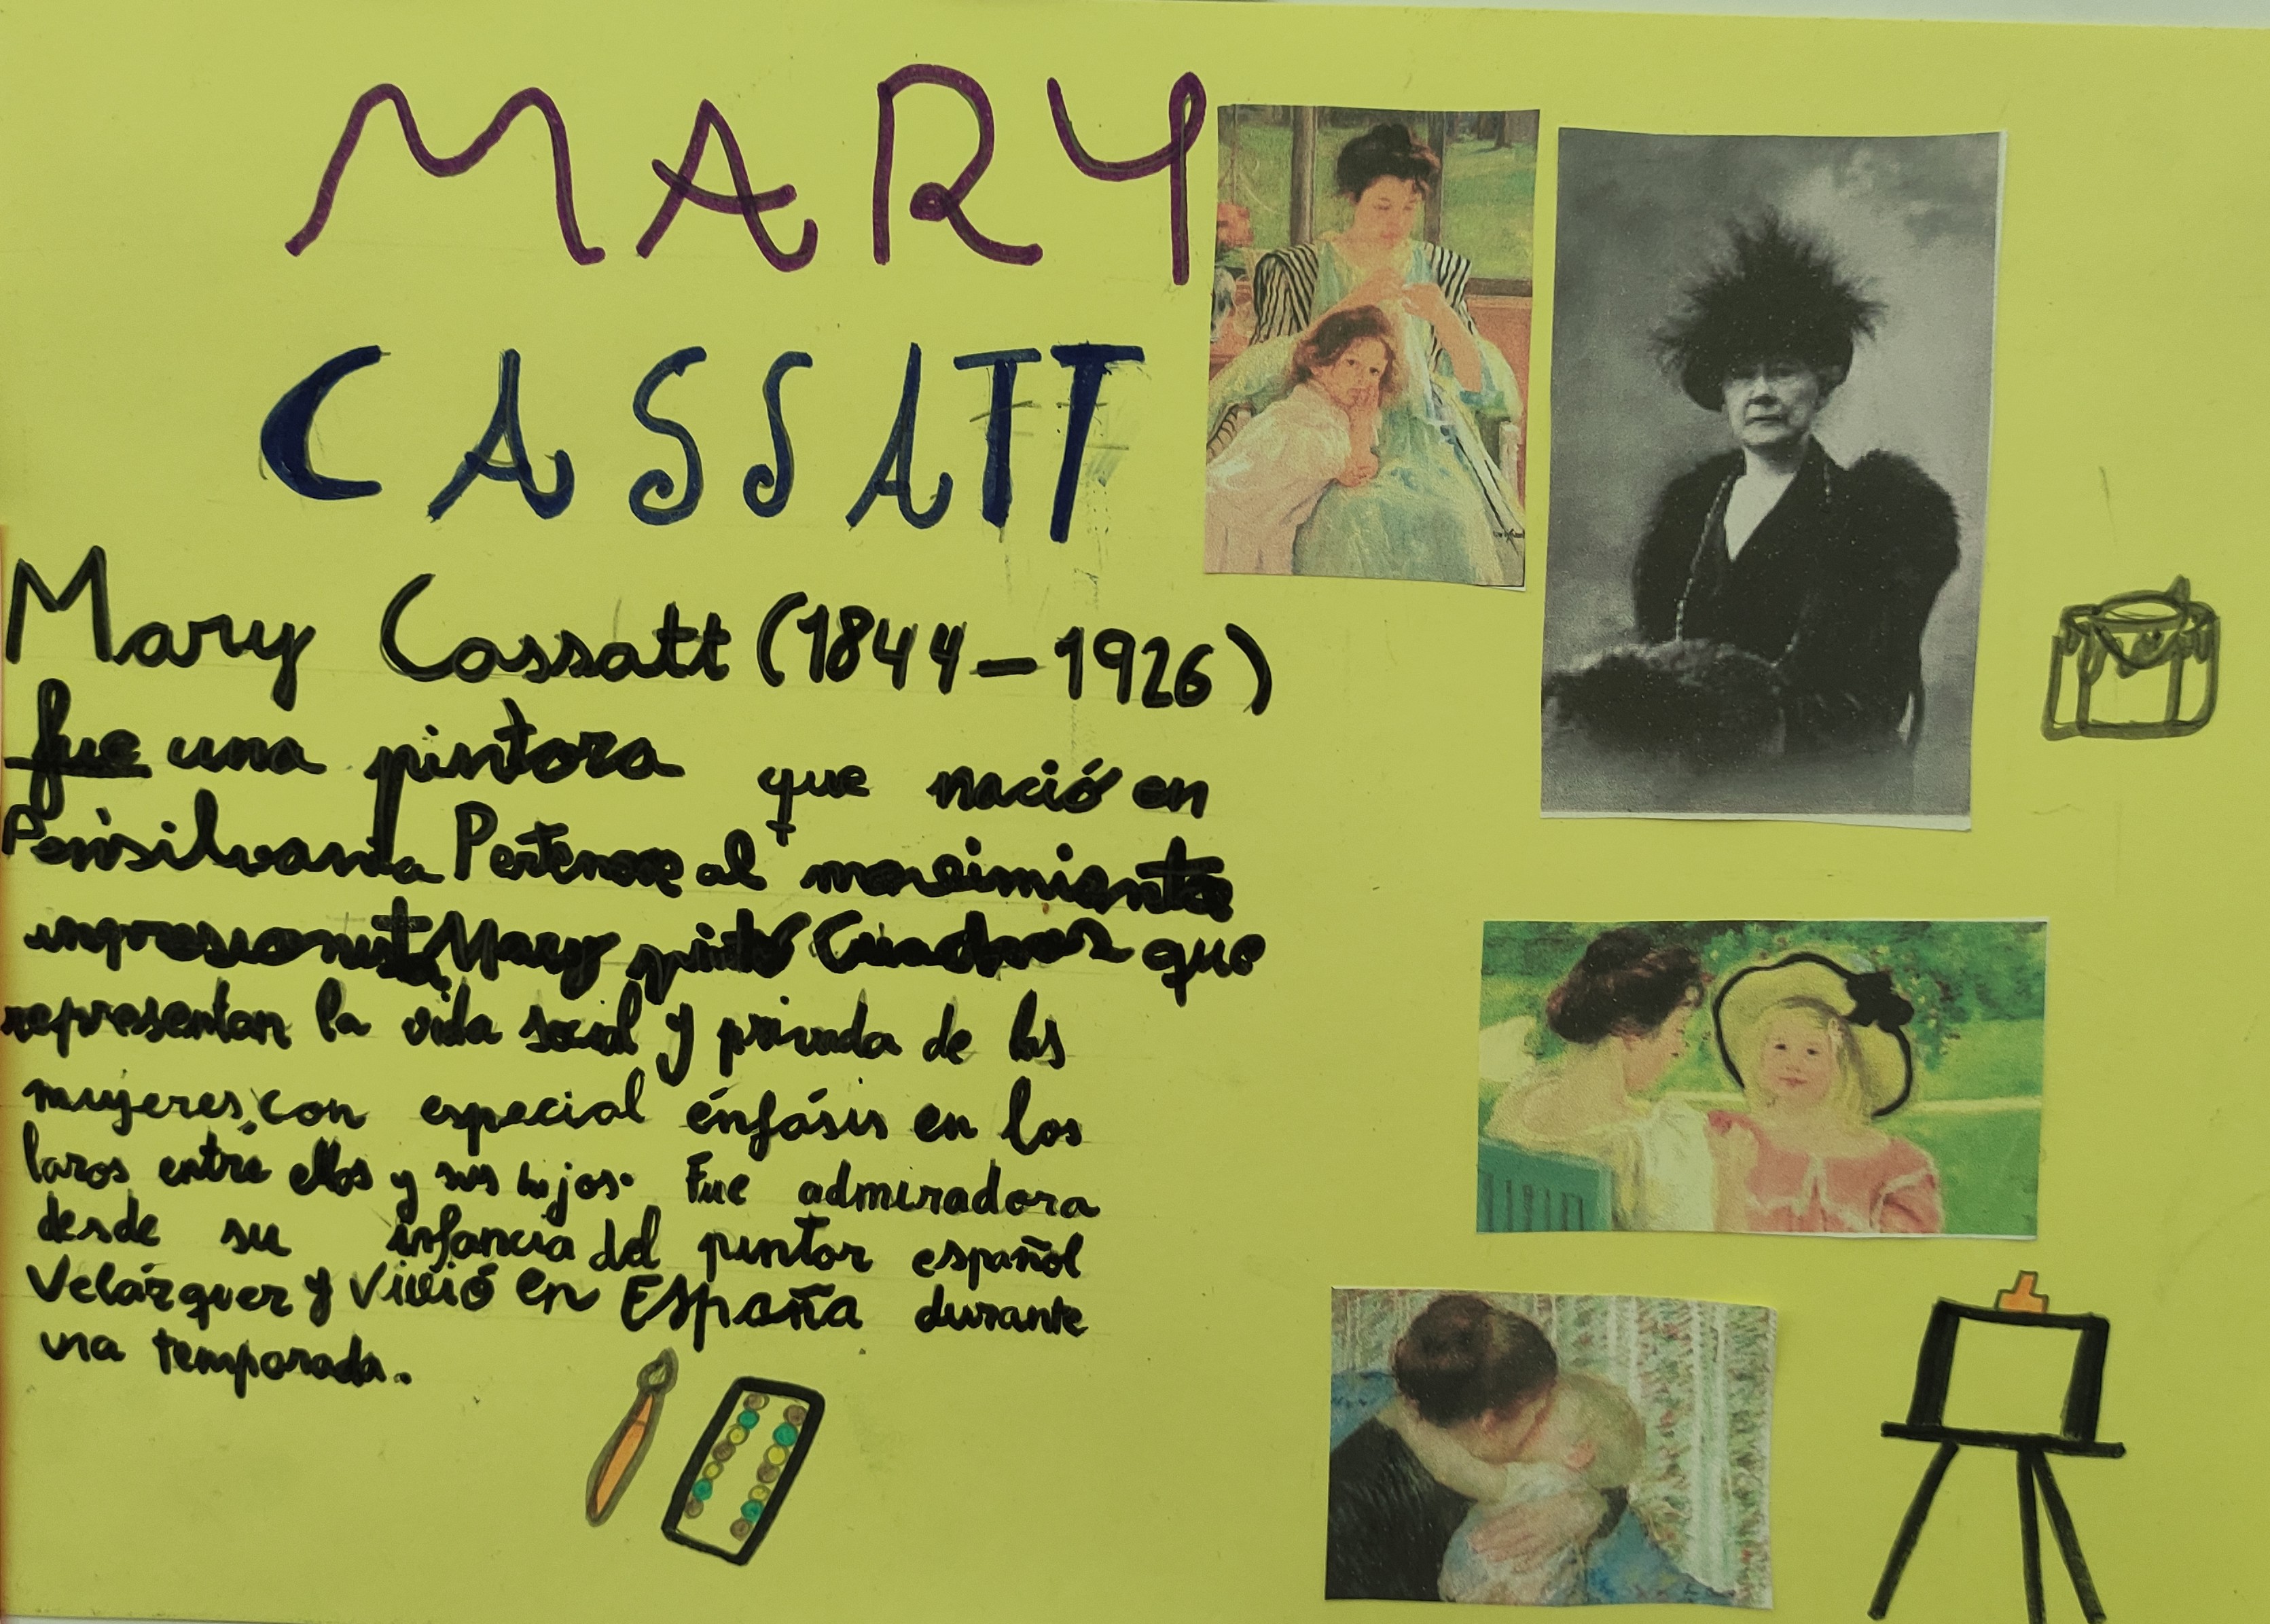 MARY
CASSATT
Mary Cassatt (1844-1926)
fue una pintora que nació en
Pensilvania Pertenece al movimiento
impresionist Mary pintó Cuadros que
representan la vida social y privada de las
mujeres, con especial énfásis en los
lazos entre ellas y sus hijos. Fue admiradora
desde su infancia del pintor español
Velázquez y Vivió en España durante
una temporada.